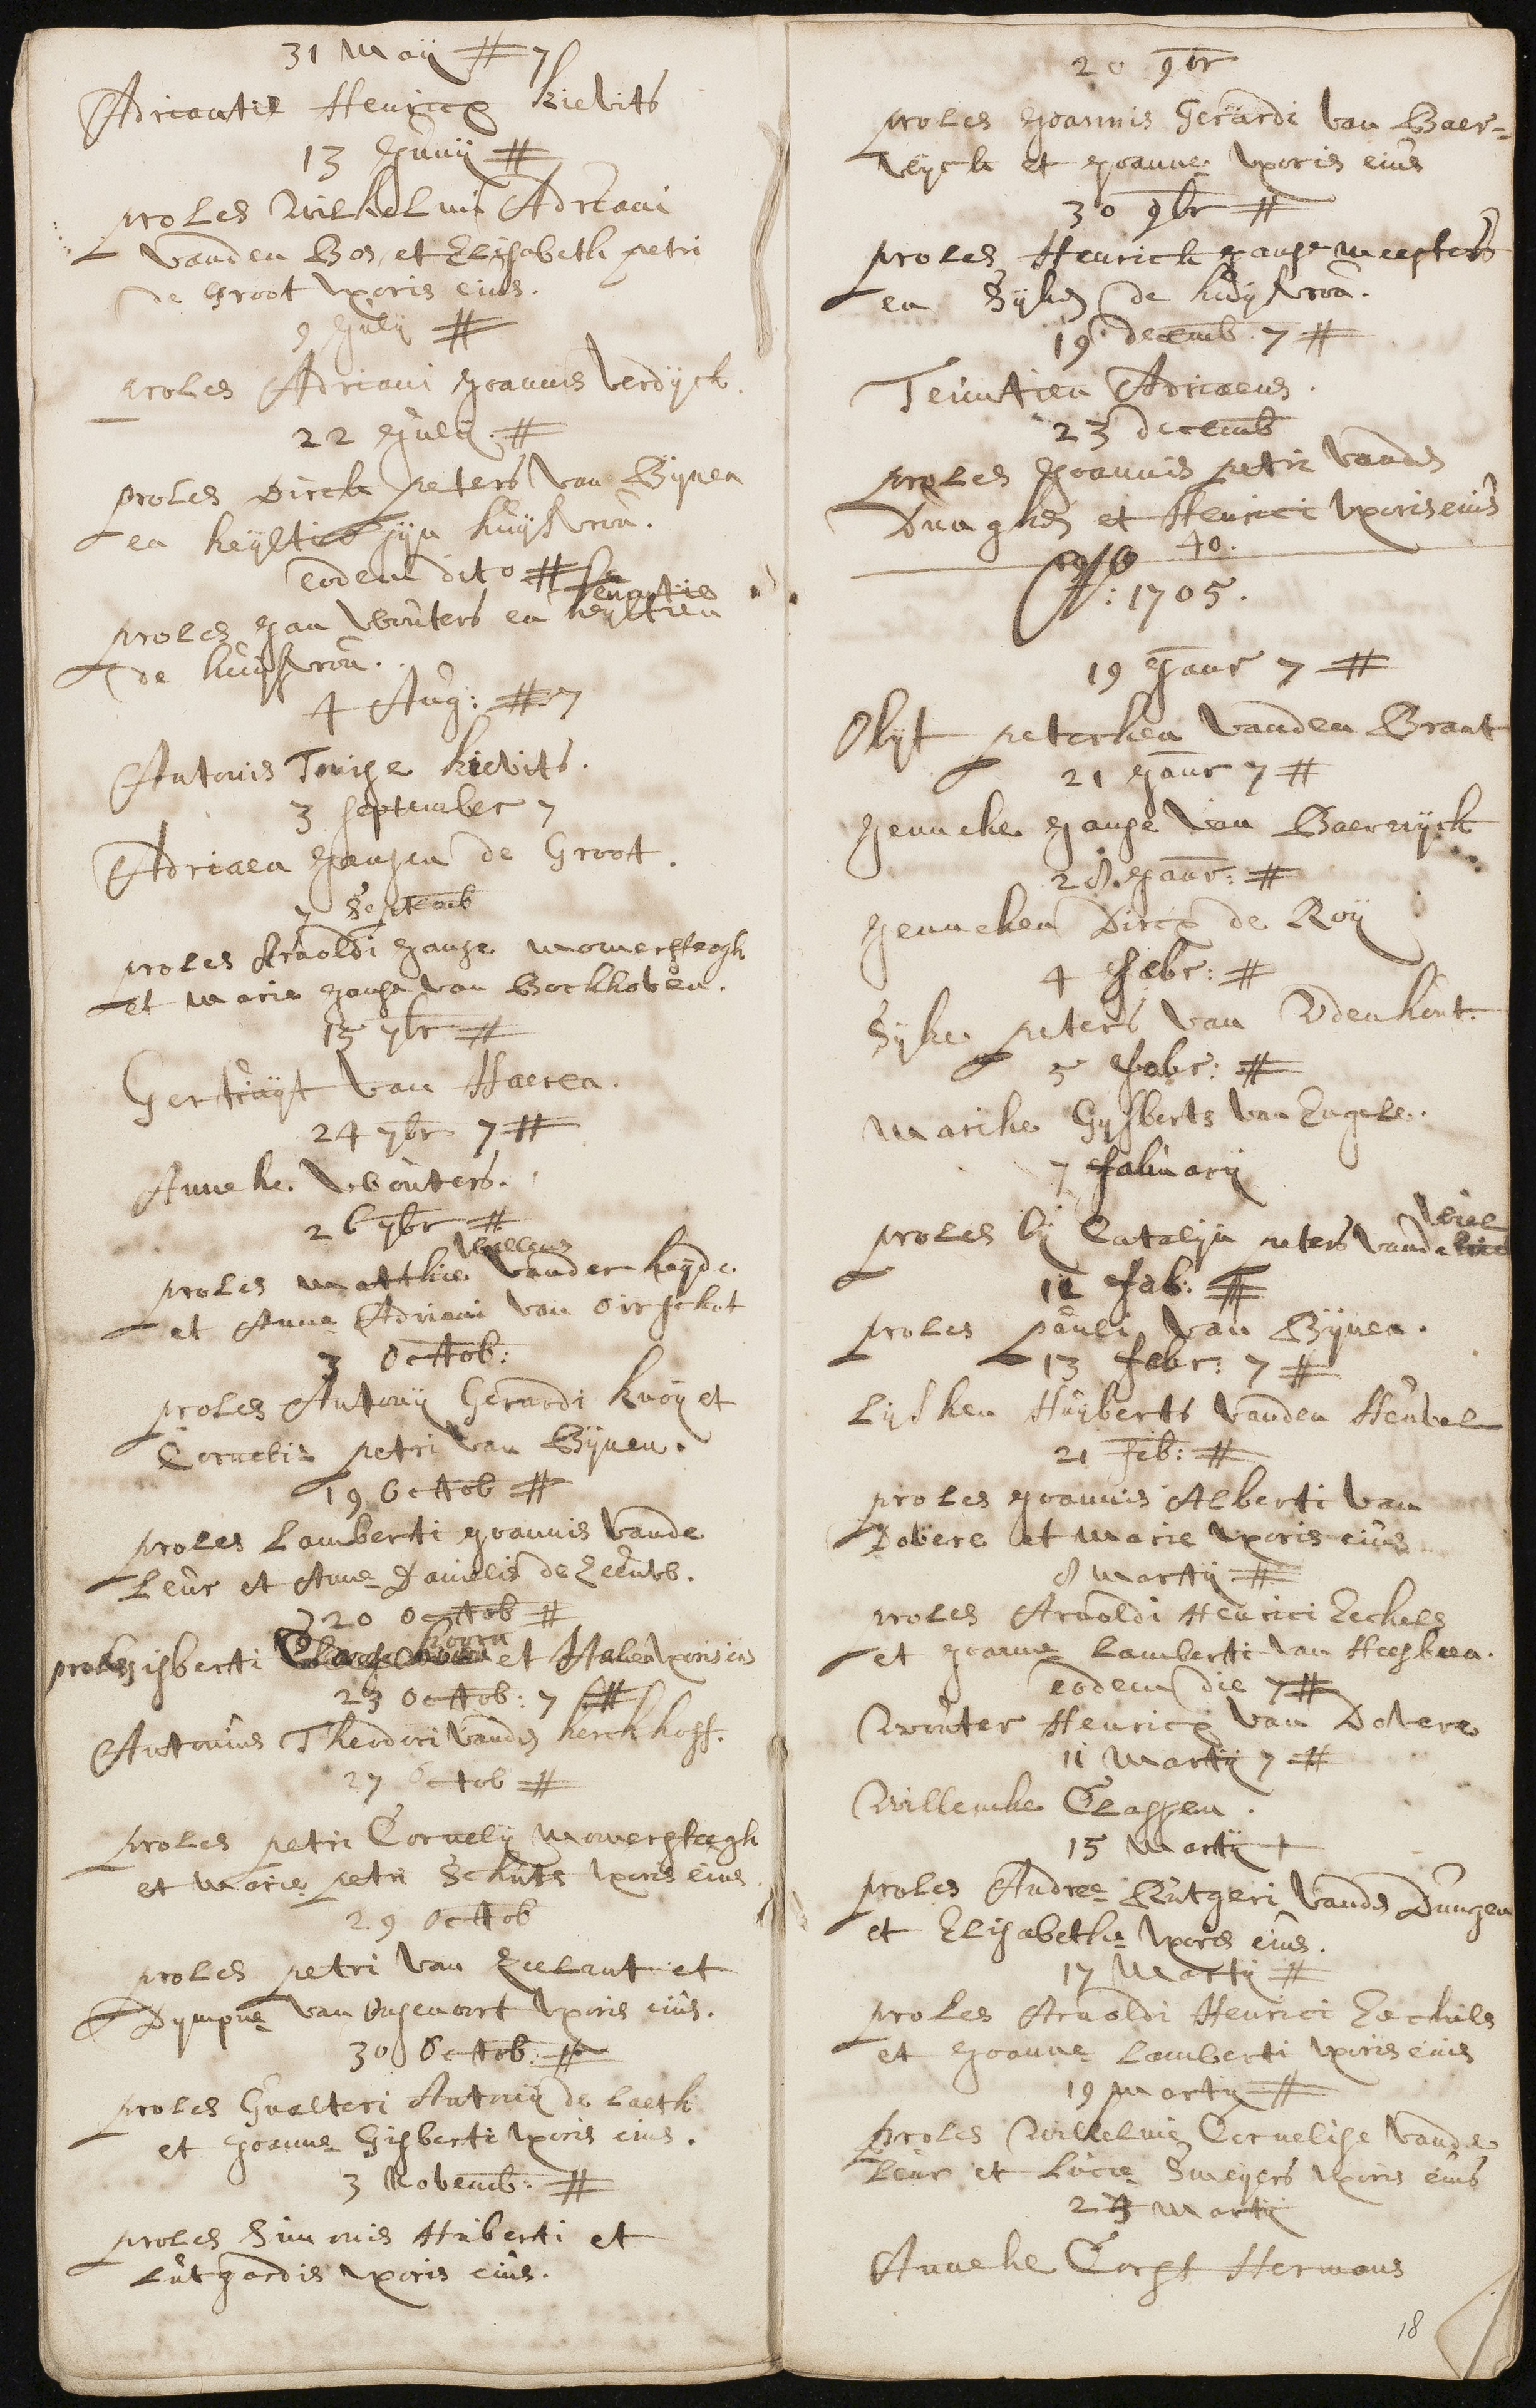 31 Maij # 7
Adriantie Henricx Kievits
13 Junij #
proles Wilhelmi Adriani
vanden Bos, et Elisabeth petri
de Groot uxoris eius.
9 Julij #
proles Adriani Joannis Verdijck.
22 Julij. #
proles Dirck peters van Bijnen
en heijltie sijn huijsvrou.
eodem dito #
proles Jan Wouters en heijltien
de huijsvrou.
4 Aug: # 7
Antonis Tonise Kievits.
3 september 7
Adriaen Jansen de Groot.
7 Septemb
proles Arnoldi Janse Momersteegh
et Marie Janse van Bockhoven.
15 7br #
Gertruijt van Haeren.
24 7br 7 #
Anneke Wouters.
26 7br #
willems
proles Matthie vander heijde
et Anne Adriani van Oirschot
3 Octtob:
proles Antonij Gerardi knoij et
Cornelie petri van Bijnen.
19 Octtob #
proles Lamberti Joannis vande
Leur et Anne Danielis de Zeeuw.
20 Octtob #
proles gisberti et uxoris eius
23 Octtob: 7 #
Antonius Theodori vanden kerckhoff.
27 Octob #
proles petri Cornelij Momersteegh
et Marie petri Schuts uxoris eius.
29 Octtob
proles petri van Zeelant et
Dympne van uxoris eius.
30 Octtob: #
proles Gualteri Antonij de Laeth
et Joanne Gisberti uxoris eius.
3 Novemb: #
proles Simonis Huberti et
Lutgardis uxoris eius.
20 9br
proles Joannis Gerardi van Baer=
wijck et Joanne uxoris eius
30 9br #
proles Henrick Janse meesters
en Sijken de huijsvrou.
19 decemb. 7 #
Teuntien Adriaens.
23 decemb
proles Joannis petri vanden
Dunghen et Henrici uxoris eius
40.
Ao: 1705.
19 Janr 7 #
Obijt peterken vanden Brant
21 Janr 7 #
Jenneke Janse van Baerwijck
28. Janr: #
Jenneken Dircx de Roij
4 Febr: #
Sijke peters van Udenhout.
5 Febr: #
Marike Gijsberts van Engele.
7 Februarij
wiel
proles bij Catalijn peters vande
12 Feb: #
proles pauli van Bijnen.
13 Febr: 7 #
Lijsken Huijberts vanden Heuvel
21 Feb: #
proles Joannis Alberti van
Dovere et Marie uxoris eius
8 Martij #
proles Arnoldi Henrici Eechels
et Joanne Lamberti van Heesbeen.
eodem die 7 #
Wouter Henricx van Dovere
11 Martij 7 #
Willemke Classen.
15 Martij +
proles Andree Rutgeri vanden Dungen
et Elisabethe uxoris eius.
17 Martij #
proles Arnoldi Henrici Eechels
et Joanne Lamberti uxoris eius
19 Martij #
proles Wilhelmi Cornelise vande
Leur et Lucie Sweijers uxoris eius
24 Martij
Anneke Corst Hermans
18